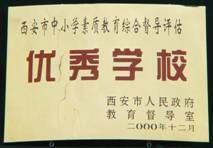 西安市中小学素质教育综合督导评估
优秀学校
西安市人民政府
教育督导室
二000年十二月